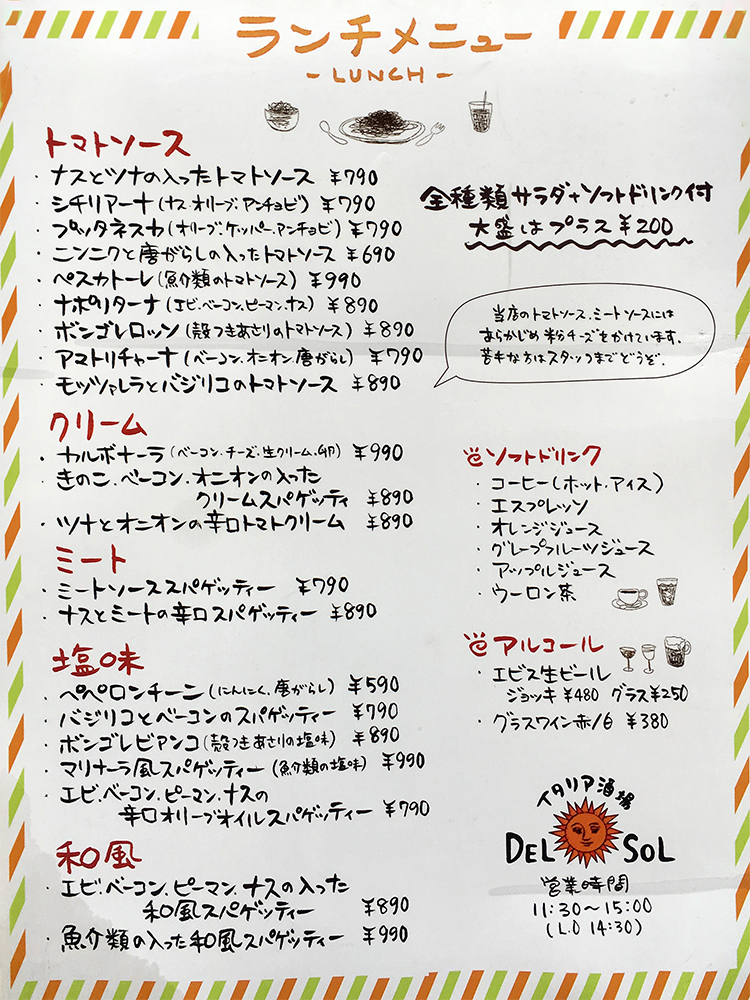 ランチメニュー
- LUNCH -
トマトソース
・ナスとツナの入ったトマトソース ¥790
・シチリアーナ(ナス.オリーブ.アンチョビ) ¥790
・プッタネスカ(オリーブ.ケッパー.アンチョビ) ¥790
・ニンニクと唐がらしの入ったトマトソース ¥690
・ペスカトーレ(魚介類のトマトソース) ¥990
・ナポリターナ(エビ.ベーコン.ピーマン.ナス) ¥890
・ボンゴレロッソ(殻つきあさりのトマトソース) ¥890
・アマトリチャーナ(ベーコン.オニオン.唐がらし) ¥790
・モッツァレラとバジリコのトマトソース ¥890
クリーム
・カルボナーラ(ベーコン.チーズ.生クリーム.卵) ¥990
・きのこ.ベーコン.オニオンの入った
クリームスパゲッティ ¥890
・ツナとオニオンの辛口トマトクリーム ¥890
ミート
・ミートソーススパゲッティー ¥790
・ナスとミートの辛口スパゲッティー ¥890
塩味
・ペペロンチーニ(にんにく.唐がらし) ¥590
・バジリコとベーコンのスパゲッティー ¥790
・ボンゴレビアンコ(殻つきあさりの塩味) ¥890
・マリナーラ風スパゲッティー(魚介類の塩味) ¥990
・エビ.ベーコン.ピーマン.ナスの
辛口オリーブオイルスパゲッティー ¥790
和風
・エビ.ベーコン.ピーマン.ナスの入った
和風スパゲッティー ¥890
・魚介類の入った和風スパゲッティー ¥990
全種類サラダ+ソフトドリンク付
大盛はプラス¥200
当店のトマトソース.ミートソースには
あらかじめ粉チーズをかけています.
苦手な方はスタッフまでどうぞ.
ソフトドリンク
・コーヒー(ホット.アイス)
・エスプレッソ
・オレンジジュース
・グレープフルーツジュース
・アップルジュース
・ウーロン茶
アルコール
・エビス生ビール
ジョッキ¥480 グラス¥250
・グラスワイン赤/白 ¥380
イタリア酒場
DEL SOL
営業時間
11:30〜15:00
(L.O 14:30)